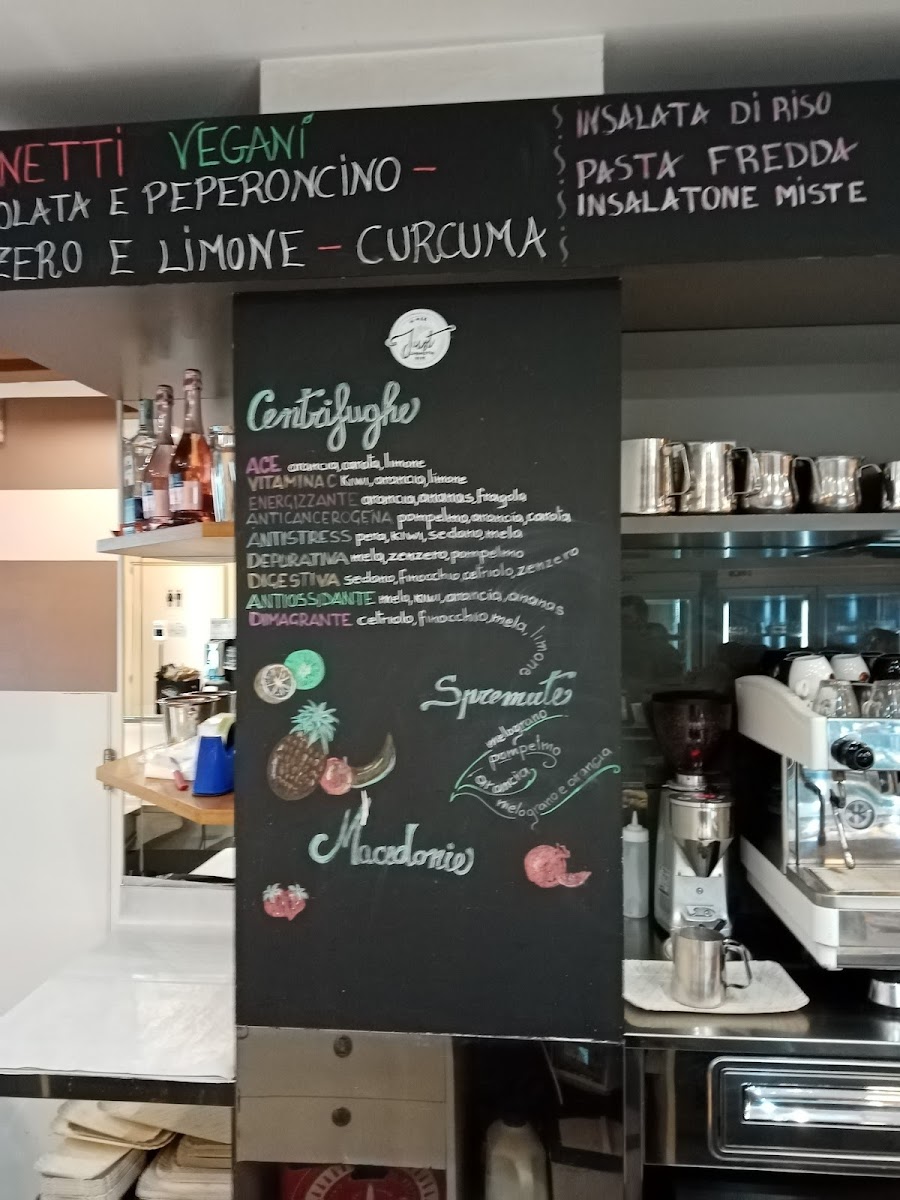 NETTI VEGANI
OLATA E PEPERONCINO –
ZERO E LIMONE – CURCUMA
INSALATA DI RISO
PASTA FREDDA
INSALATONE MISTE
Just
Centrifughe
ACE arancia, carota, limone
VITAMINA C Kiwi, arancia, limone
ENERGIZZANTE arancia, ananas, fragola
ANTICANCEROGENA pompelmo, arancia, carota
ANTISTRESS pera, Kiwi, sedano, mela
DEPURATIVA mela, zenzero, pompelmo
DIGESTIVA sedano, finocchio, cetriolo, zenzero
ANTIOSSIDANTE mela, kiwi, arancia, ananas
DIMAGRANTE cetriolo, finocchio, mela, limone
Spremute
melograno
pompelmo
arancia
melograno e arancia
Macedonie